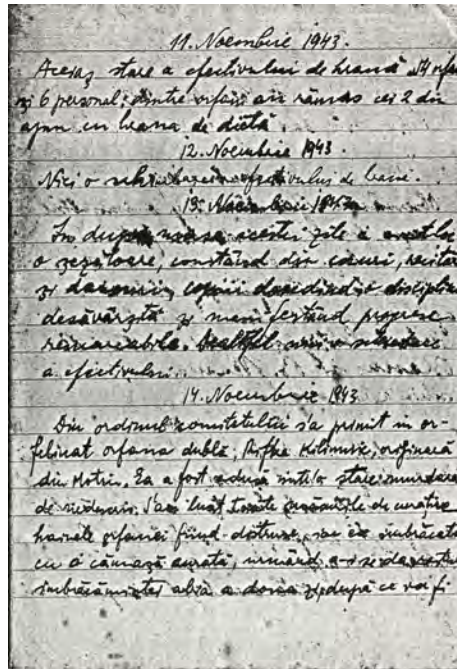 11. Noembrie 1943.
Aceiaș stare a efectivului de hrană 54 orfani
și 6 personal; dintre orfani au rămas cei 2 din
ajun cu hrana de dietă.
12. Noembrie 1943.
Nici o schimbare în efectivului de hrană.
13. Noembrie 1943
În după masa acestei zile a avut loc
o șezătoare, constând din coruri, recitări
și dansuri, copiii dovedind o disciplină
desăvârșită și manifestând progrese
remarcabile. nici o schimbare
a efectivului.
14. Noembrie 1943
Din ordinul comitetului s'a primit în or-
felinat orfana dublă, Rifka, originară
din. Ea a fost adusă într'o stare murdară
de nedescris. S'au luat toate măsurile de curățire
hainele orfanei fiind distruse, s'a îmbrăcat
cu o cămașă curată, urmând a i se da restul
îmbrăcămintei abia a doua zi, după ce va fi